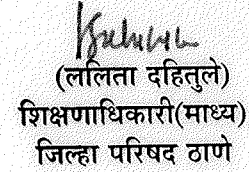 (ललिता दहितुले)
शिक्षणाधिकारी(माध्य)
जिल्हा परिषद ठाणे